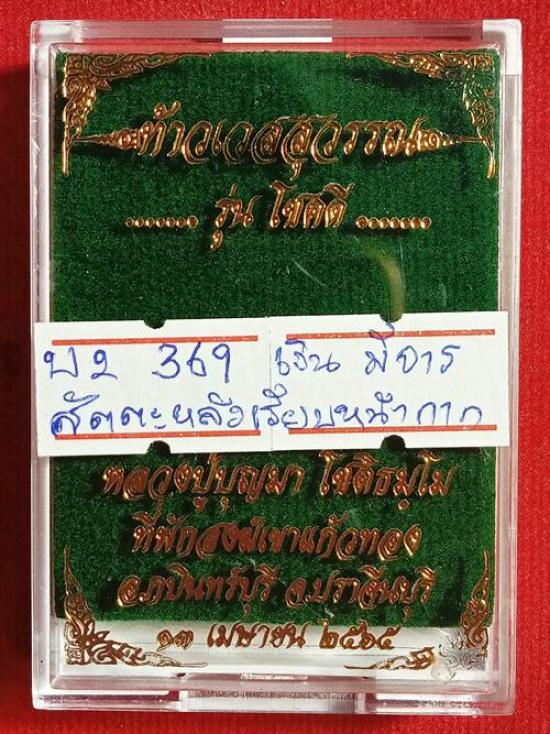 ท้าวเวสสุวรรณ
....... รุ่น โชคดี .......
บ2 369 เงิน มีจาร
สัตตะหลังเรียบหน้ากาก
หลวงปู่บุญมา โชติธมฺโม
ที่พักสงฆ์เขาแก้วทอง
อ.กบินทร์บุรี จ.ปราจีนบุรี
๑๓ เมษายน ๒๕๖๕